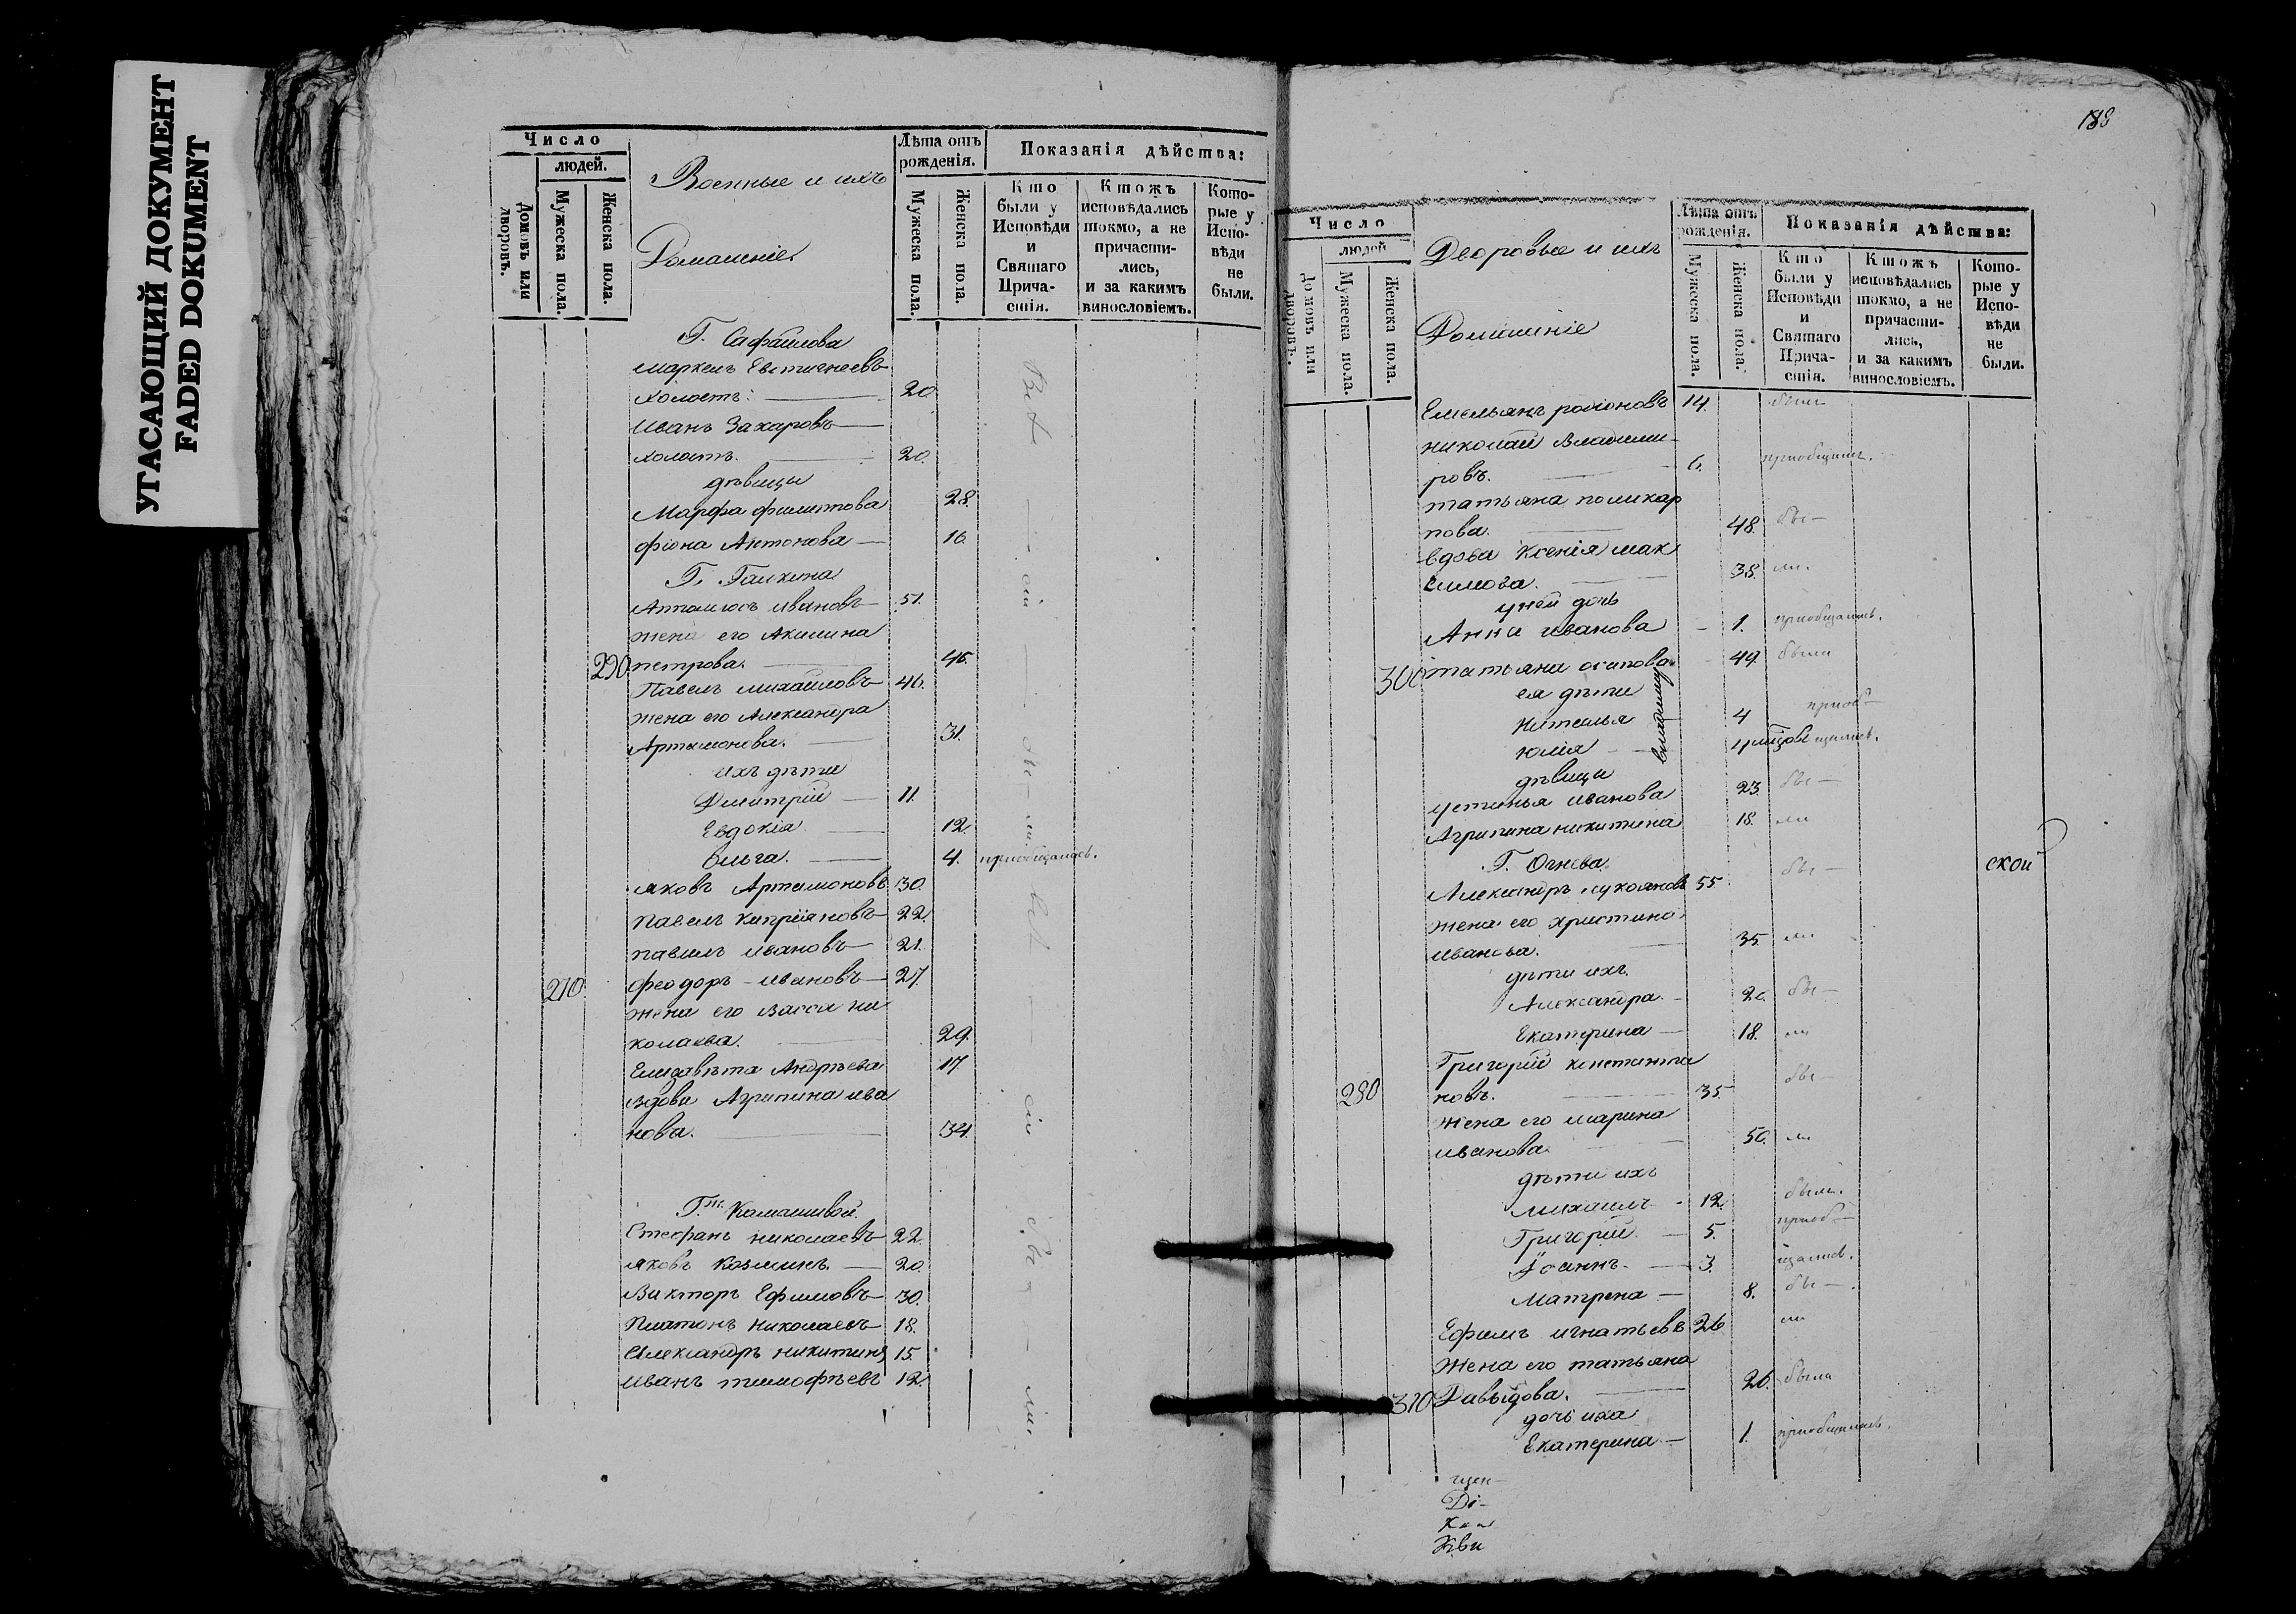 УГАСАЮЩИЙ ДОКУМЕНТ
FADED DOKUMENT
Число
людей.
Домовъ или дворовъ.
Мужеска пола.
Женска пола.
Военные и ихъ
Домашніе
Лѣта отъ рожденія.
Мужеска пола.
Женска пола.
Показанія дѣйства:
Кто были у Исповѣди и Святаго Прича-стія.
Ктожъ исповѣдались токмо, а не причасти-лись, и за какимъ винословіемъ.
Кото-рые у Испо-вѣди не были.
Г. Сафаилова
Маркелъ Евстигнеевъ
холостъ: 20
Иванъ Захаровъ
холостъ. 20.
дѣвицы
Марфа Филитова 28.
Фіона Антонова 16.
Г. Галкина
Ивановъ 51.
жена его Акилина
290 петрова. 46.
Павелъ михайловъ 46.
жена его Александра
Артамонова. 31.
ихъ дѣти
Дмитрій 11.
Евдокія 12.
Ольга. 4. приобщалась.
яковъ Артамоновъ 30.
Павелъ Кипріяновъ 22.
павелъ ивановъ 21.
270 феодоръ ивановъ 27.
жена его Васса ни
колаева. 29.
Елизавѣта Андрѣева 17
вдова Агрипина ива
нова. 34.
Стефанъ николаевъ 22.
яковъ Козминъ. 20.
Викторъ Ефимовъ 30.
Платонъ николаевъ 18.
Александръ никитинъ 15.
иванъ тимофѣевъ 12.
Всѣ
сіи
бы
ли
всѣ
сіи
бы
ли
Число
людей
Домовъ или дворовъ.
Мужеска пола.
Женска пола.
Дворовые и ихъ
Домашніе
Лѣта отъ рожденія.
Мужеска пола.
Женска пола.
Показанія дѣйства:
Кто были у Исповѣди и Святаго Прича-стія.
Ктожъ исповѣдались токмо, а не причасти-лись, и за какимъ винословіемъ.
Кото-рые у Испо-вѣди не были.
Емельянъ родіоновъ 14. былъ
николай владими-
ровъ. 6. приобщался.
татьяна поликар
пова. 48. бы—
вдова Ксенія мак
симова. 38. ли.
у ней дочь
Анна иванова 1. приобщалась.
300 татьяна осипова 49 была
ея дѣти
Наталья 4 приоб—
владимир
юлія
щались.
дѣвицы
устинья иванова 23. бы—
Агрипина никитина 18. ли
Г. Огнева. ской
Александръ лукояновъ 55 бы—
жена его христина
иванова. 35. ли
дѣти ихъ
Александра. 20. бы—
Екатерина 18. ли
Григорій константи
280 новъ. 35. бы—
жена его марина
иванова. 50. ли
дѣти ихъ
михаилъ 12. былъ.
Григорій. 5. приоб—
Іоаннъ. 3. щались.
Матрена 8. бы—
Ефимъ игнатьевъ 26 ли
жена его татьяна
310 Давыдова. 26. была
дочь ихъ
Екатерина 1. приобщалась.
щен-
Ді-